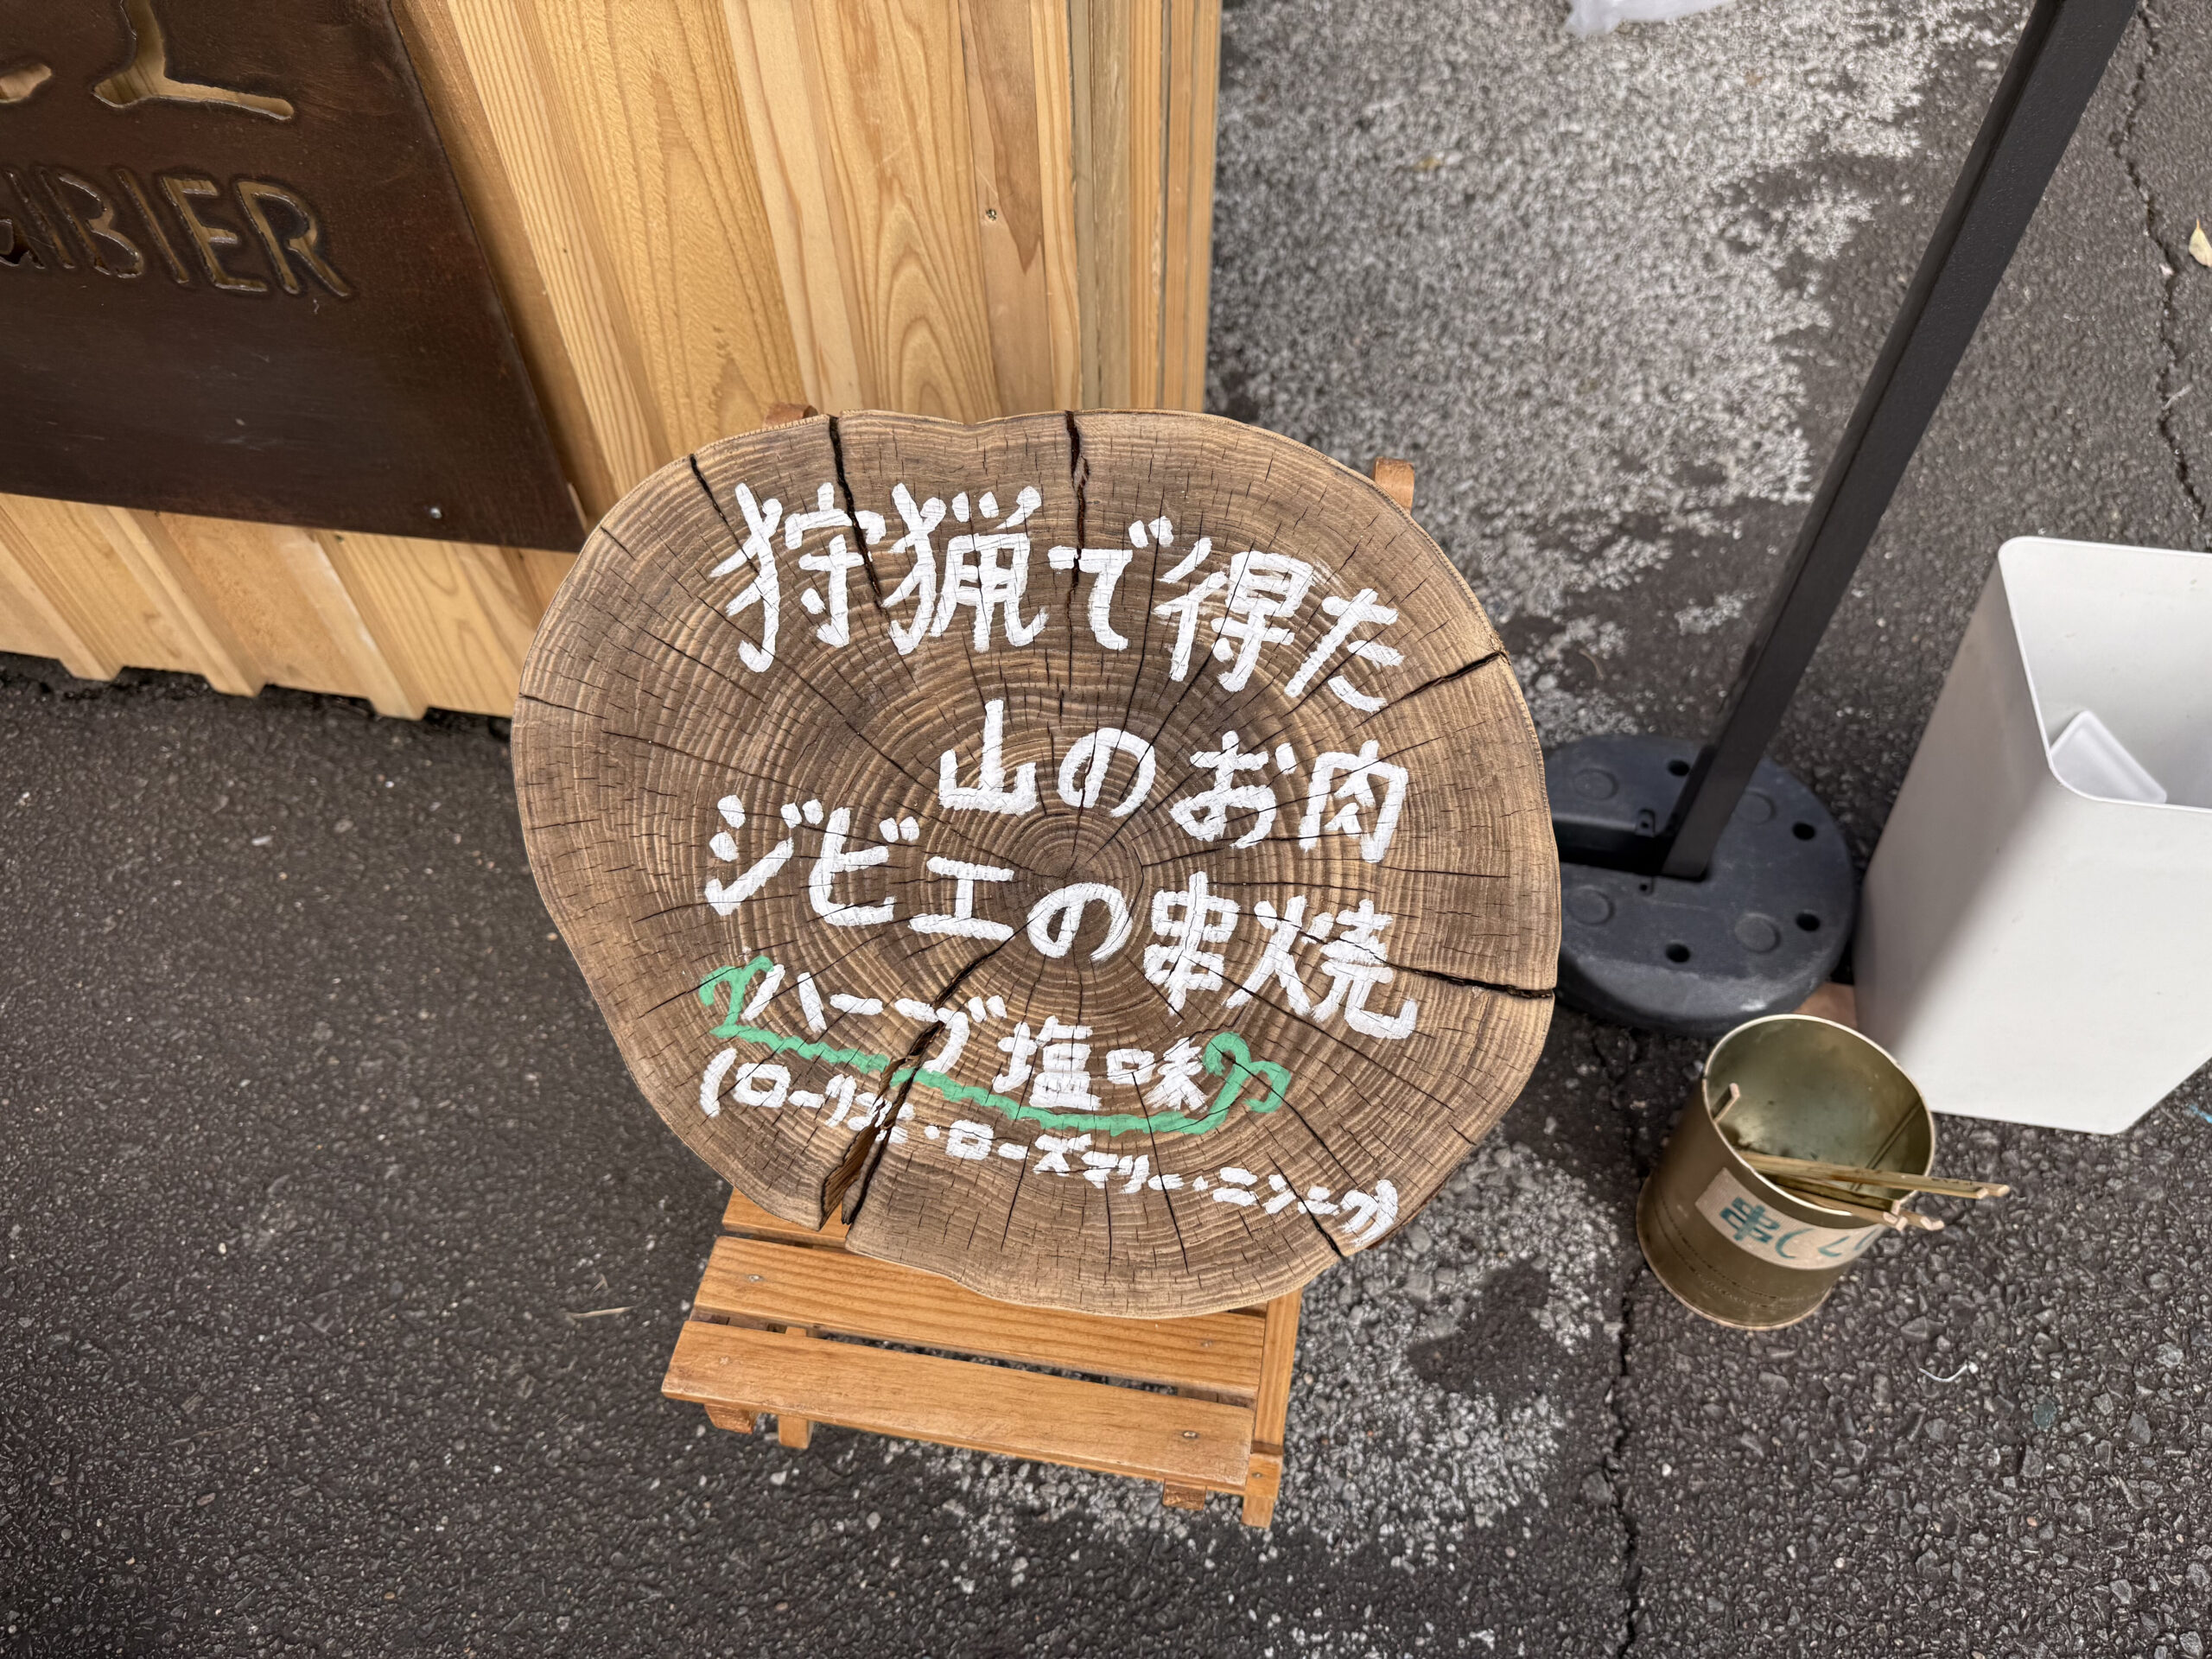 GIBIER
狩猟で得た
山のお肉
ジビエの串焼
ハーブ塩味
(ローリエ・ローズマリー・ニンニク)
串